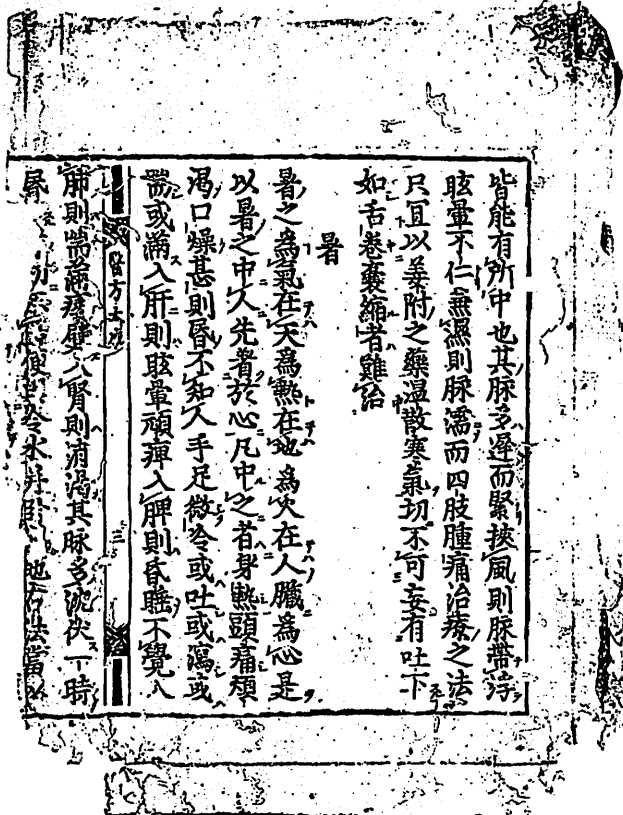 皆能有所中也其脉多遲而緊挾風則脉帶浮
眩暈不仁兼濕則脉濡而四肢腫痛治療之法
只宜以姜附之藥温散寒氣切不可妄有吐下
如舌卷囊縮者難治
暑
暑之爲氣在天爲熱在地爲火在人臟爲心是
以暑之中人先着於心凡中之者身熱頭痛煩
渴口燥甚則昏不知人手足微冷或吐或瀉或
喘或滿入肝則眩暈頑痺入脾則昏睡不覺入
醫方大成 三
肺則喘滿痿躄入腎則消渇其脉多沈伏一時
昏 冷水 地 法當以